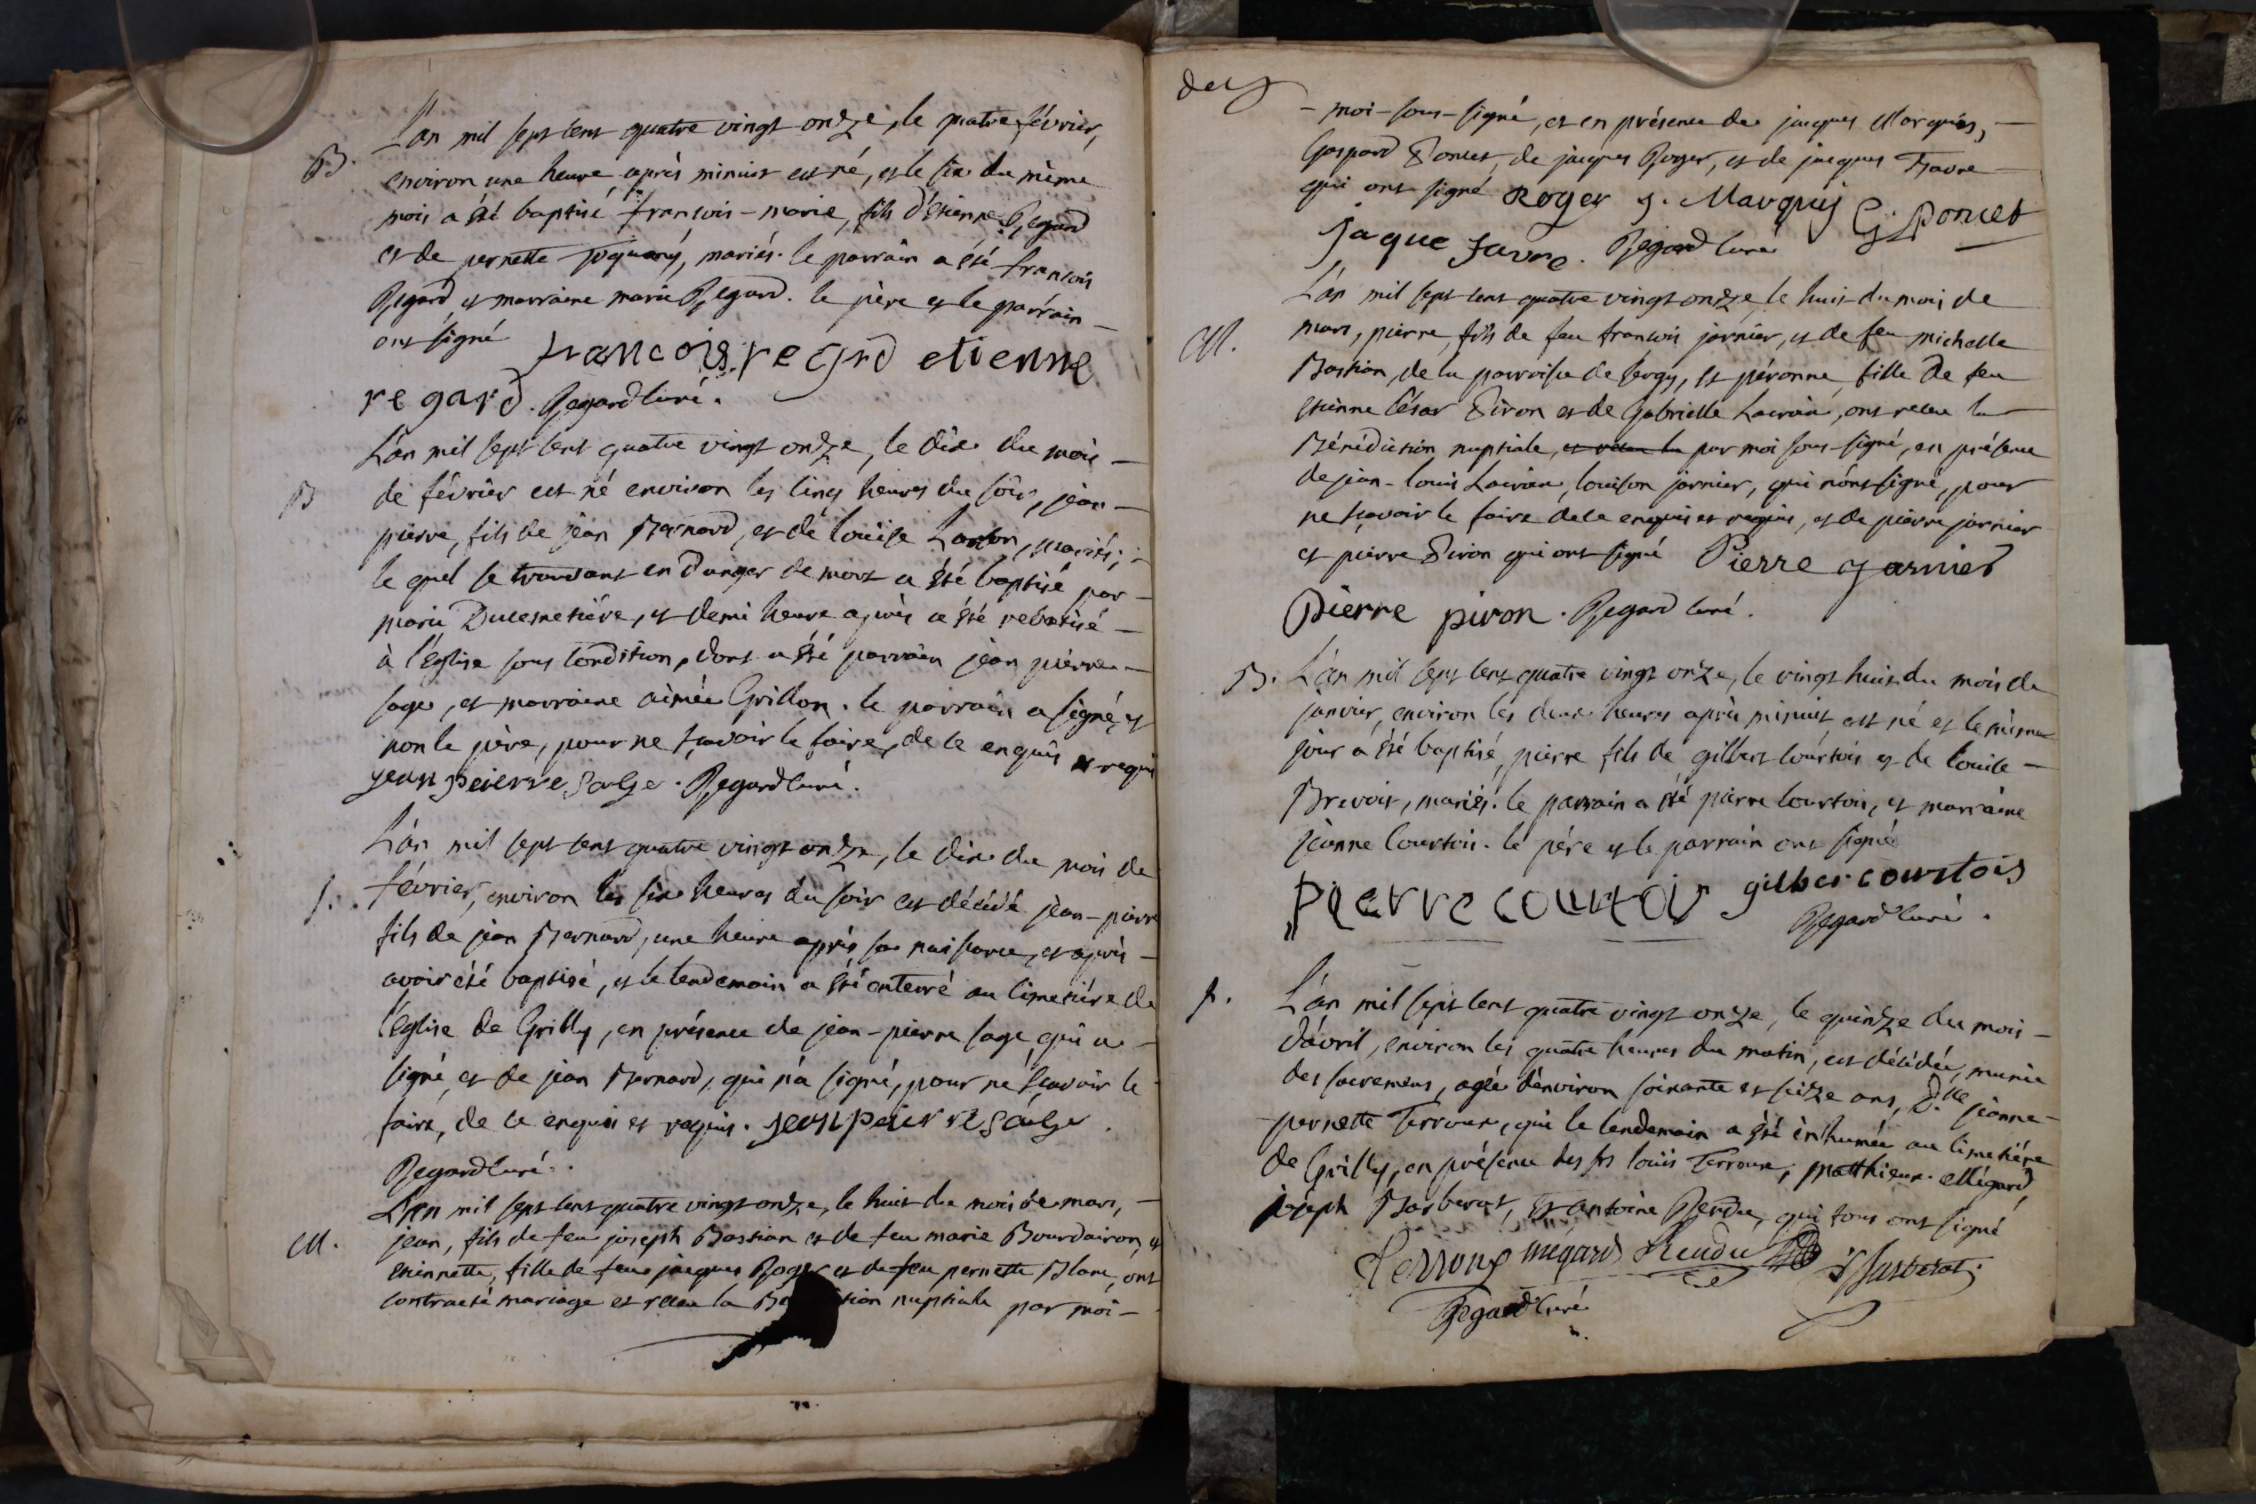 B. L'an mil sept cent quatre vingt onze, le quatre février,
environ une heure après minuit est né, et le six du même
mois a été baptisé françois-marie, fils d'étienne Regard
et de pernette, mariés. le parrain a été françois
Regard et marraine marie Regard. le père et le parrain
ont signé francois regrd etienne
regard. Regard curé.
B L'an mil sept cent quatre vingt onze, le dix du mois
de février est né environ les cinq heures du soir, jean
pierre, fils de jean Bernard, et de louise, mariés;
le quel se trouvant en danger de mort a été baptisé par
marie Ducimetière, et demi heure après a été rebatisé
à l'église sous condition, dont a été parrain jean pierre
sage, et marraine aimée Grillon. le parrain a signé, et
non le père, pour ne sçavoir le faire, de ce enquis et requis
jean peierre salge. Regard curé.
s. L'an mil sept cent quatre vingt onze, le dix du mois de
février, environ les six heures du soir est décédé jean-pierre
fils de jean Bernard, une heure après sa naissance, et après
avoir été baptisé, et le lendemain a été enterré au cimetière de
l'église de Grilly, en présence de jean-pierre sage, qui a
signé, et de jean Bernard, qui n'a signé, pour ne sçavoir le
faire, de ce enquis et requis. jean peierre salge.
Regard curé.
M. L'an mil sept cent quatre vingt onze, le huit du mois de mars,
jean, fils de feu joseph Bastian et de feu marie Bourdairon, et
étiennette, fille de feu jacques Roger et de feu pernette Blanc, ont
contracté mariage et reçu la nuptiale par moi-
moi-sous-signé, et en présence de jacques Marquis,
Gaspard Poncet, de jacques Roger, et de jacques Favre
qui ont signé Roger j. Marquis G. Poncet
jaque favre. Regard curé
M. L'an mil sept cent quatre vingt onze, le huit du mois de
mars, pierre, fils de feu françois jarnier, et de feu michelle
Bastian, de la parroisse de sergy, et péronne fille de feu
étienne César Piron et de Gabrielle Lacroix, ont reçu la
Bénédiction nuptiale, et reçu la par moi sous-signé, en présence
de jean-louis Lacroix, louison jarnier, qui n'ont signé, pour
ne sçavoir le faire de ce enquis et requis, et de pierre jarnier
et pierre Piron qui ont signé Pierre jarnier
pierre piron. Regard curé.
B. L'an mil sept cent quatre vingt onze, le vingt huit du mois de
janvier, environ les deux heures après minuit est né et le même
jour a été baptisé, pierre fils de gilbert Courtois et de louise
Brevoit, mariés. le parrain a été pierre Courtois, et marraine
jeanne Courtois. le père et le parrain ont signé
pierre courtois gilber courtois
Regard curé.
s. L'an mil sept cent quatre vingt onze, le quinze du mois
d'avril, environ les quatre heures du matin, est décédée, munie
des sacremens, agée d'environ soixante et seize ans, D.lle jeanne-
pernette Terroux, qui le lendemain a été inhumée au cimetière
de Grilly, en présence des srs louis Terroux, matthieux Mégard,
joseph Barberat, et antoine Rendu, qui tous ont signé
Terroux mégard Rendu J Barberat
Regard curé